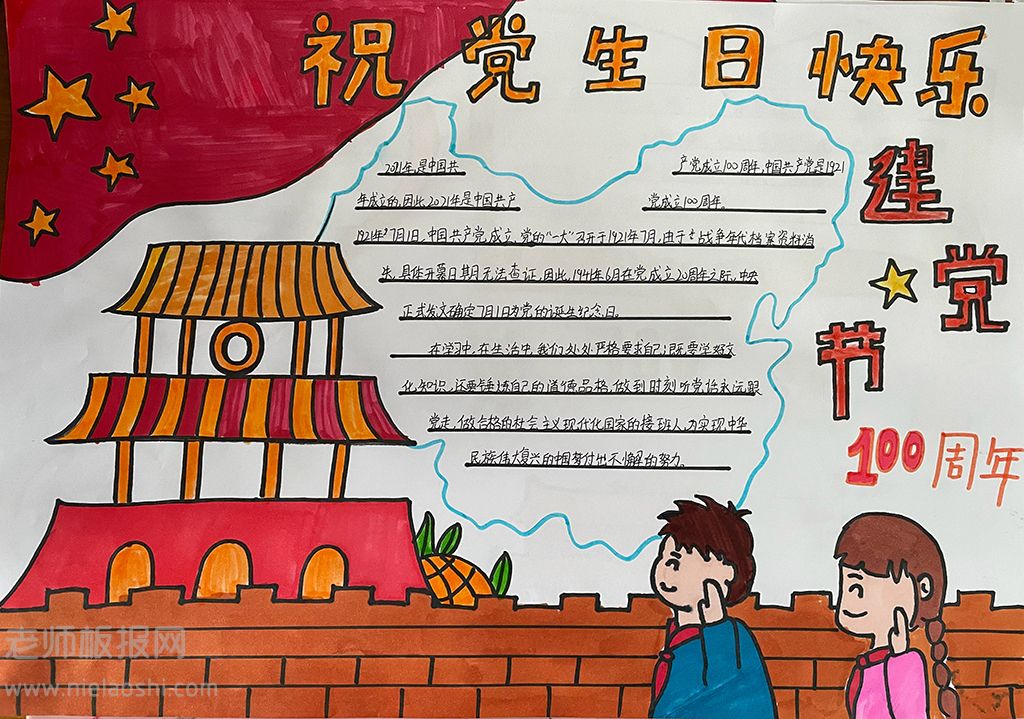 祝党生日快乐
建党节
100周年
2021年,是中国共
产党成立100周年,中国共产党是1921
年成立的,因此,2021年是中国共产
党成立100周年。
1921年7月1日,中国共产党成立,党的“一大”召开于1921年7月,由于战争年代档案资料当
失,具体开幕日期无法查证,因此,1941年6月在党成立20周年之际,中央
正式发文确定7月1日为党的诞生纪念日。
在学习中,在生活中,我们处处严格要求自己;既要学好文
化知识,还要锤炼自己的道德品格,做到时刻听党信永远跟
党走,做合格的社会主义现代化国家的接班人,为实现中华
民族伟大复兴的中国梦付出不懈的努力。
老师板报网
www.melaoshi.com